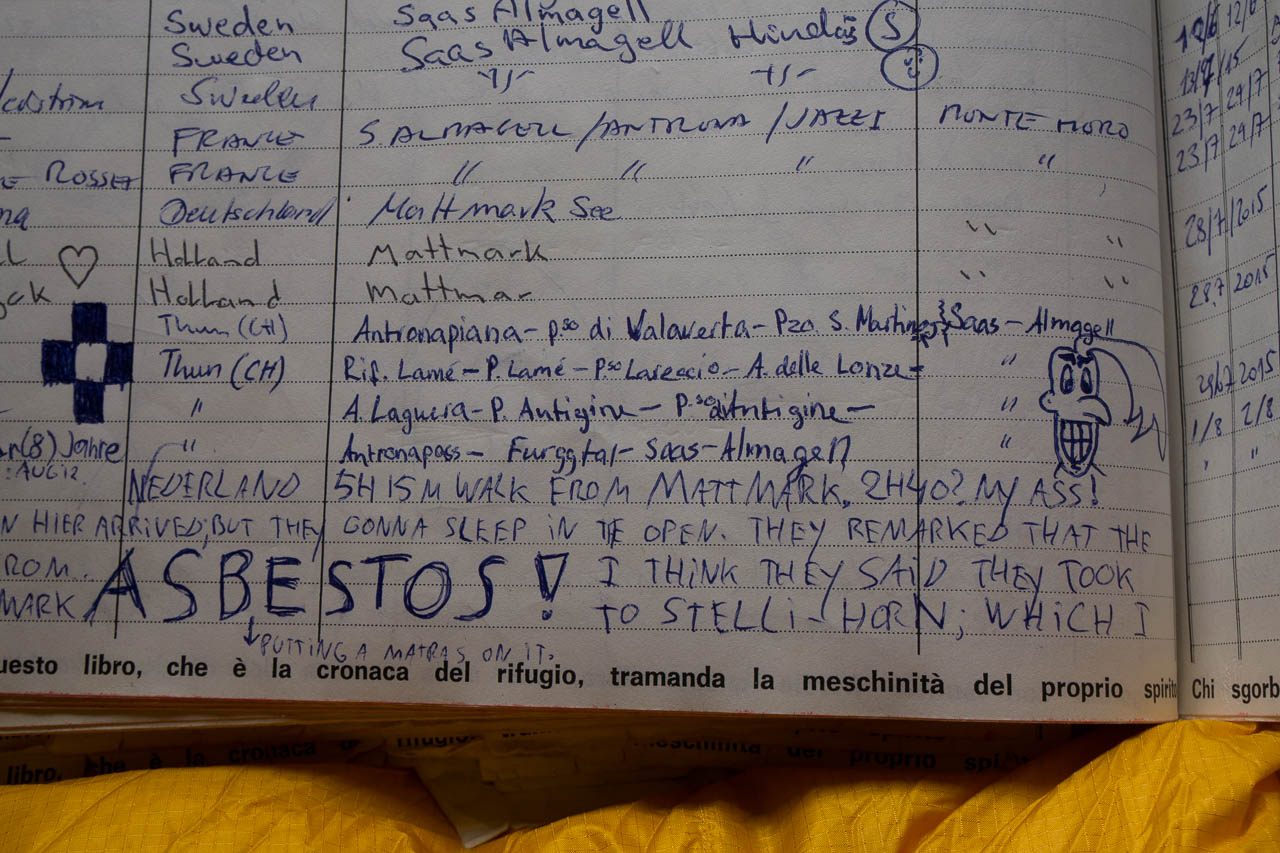 Sweden Saas Almagell
Sweden Saas Almagell Hindås S
Sweden -"- -"-
FRANCE S. ALMAGELL / ANTRONA / JAZZI MONTE MORO
ROSSET FRANCE " " " "
Deutschland Mattmark See
Holland Mattmark " "
Holland Mattmar " "
Thun (CH) Antronapiana - Pso di Valaverta - Pzo. S. Martino Saas - Almagell
Thun (CH) Rif. Lamé - P. Lamé - Pso Lareccio - A. delle Lonze - "
" A. Laguera - P. Antigine - Pso di Antigine - "
(8) Jahre " Antronapass - Furggtal - Saas - Almagell "
NEDERLAND 5H 15M WALK FROM MATTMARK. 2H40? MY ASS!
HIER ARRIVED; BUT THEY GONNA SLEEP IN TE OPEN. THEY REMARKED THAT THE
ROM. ASBESTOS! I THINK THEY SAID THEY TOOK
MARK TO STELLI-HORN; WHICH I
PUTTING A MATRAS ON IT.
uesto libro, che è la cronaca del rifugio, tramanda la meschinità del proprio spirito
12/6
15
23/7 24/7
23/7 24/7
28/7/2015
28.7 2015
29/07 2015
1/8 2/8
" "
Chi sgorb
libro, che è la cronaca d rifugio, meschinità del proprio spi